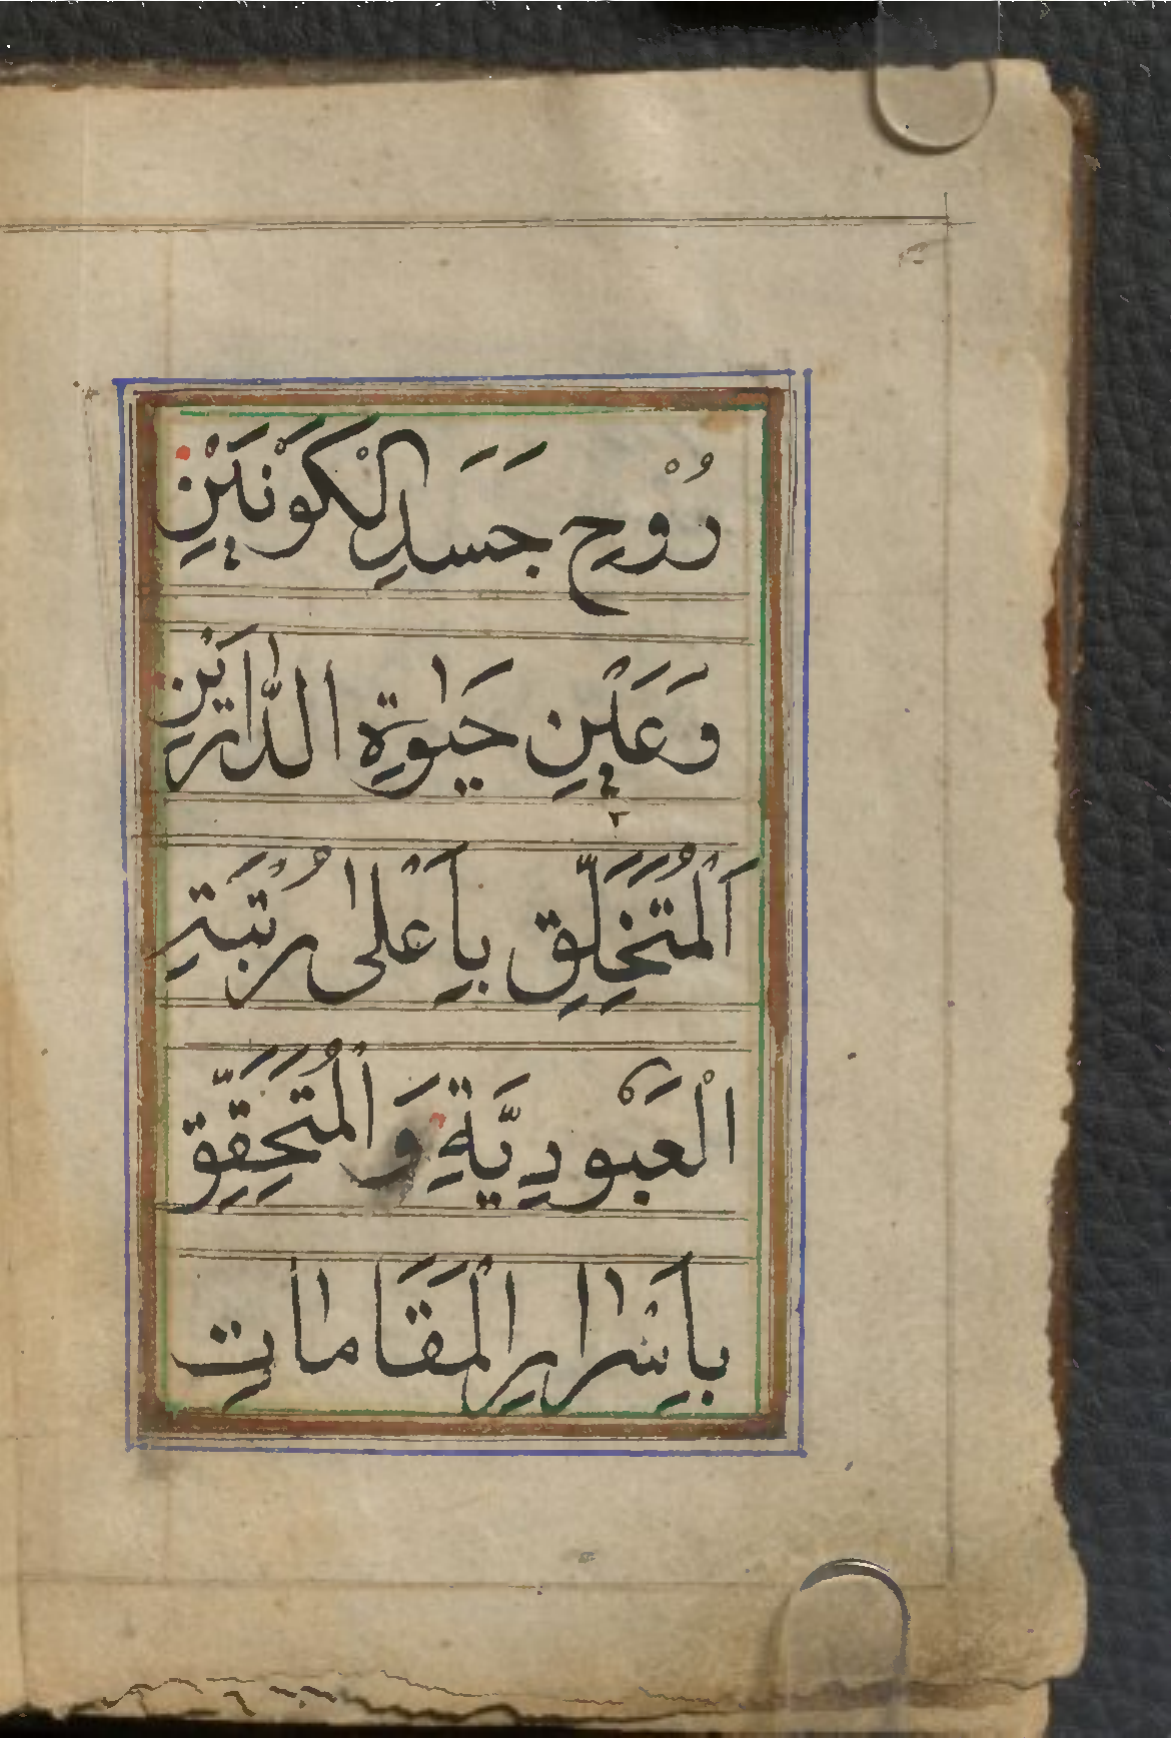 رُوْحِ جَسَدِ الْكَوْنَيْنِ
وَعَيْنِ حَيٰوةِ الدَّارَيْنِ
اَلْمُتَخَلِّقِ بِاَعْلٰى رُتْبَةِ
الْعَبُودِيَّةِ وَالْمُتَحَقِّقِ
بِاَسْرٰارِ الْمَقَامٰاتِ